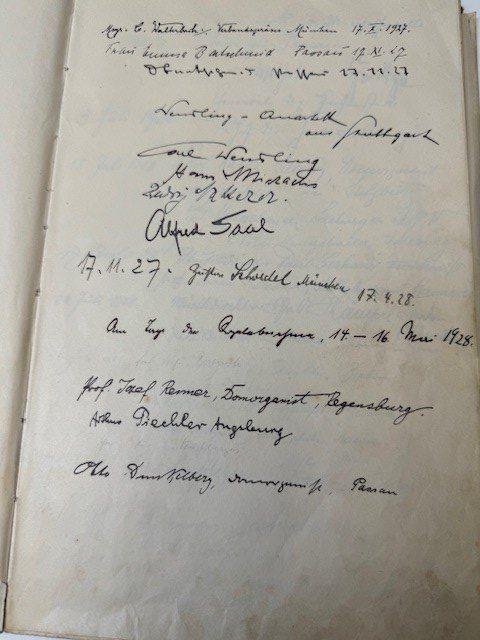 Msgr. C. Walterbach, Verbandspräses München 17.X.1927.
Frau Emma Passau 17.XI.27
17.11.27
Wendling-Quartett
aus Stuttgart
Carl Wendling
Hans Michaelis
Ludwig Natterer.
Alfred Saal
17.11.27. Schoedel München 17.4.28.
Am Tage der Orgelabnahme, 14.-16. Mai 1928.
Prof. Josef Renner, Domorganist, Regensburg.
Arthur Piechler Augsburg
Otto Dunkelberg, Domorganist, Passau